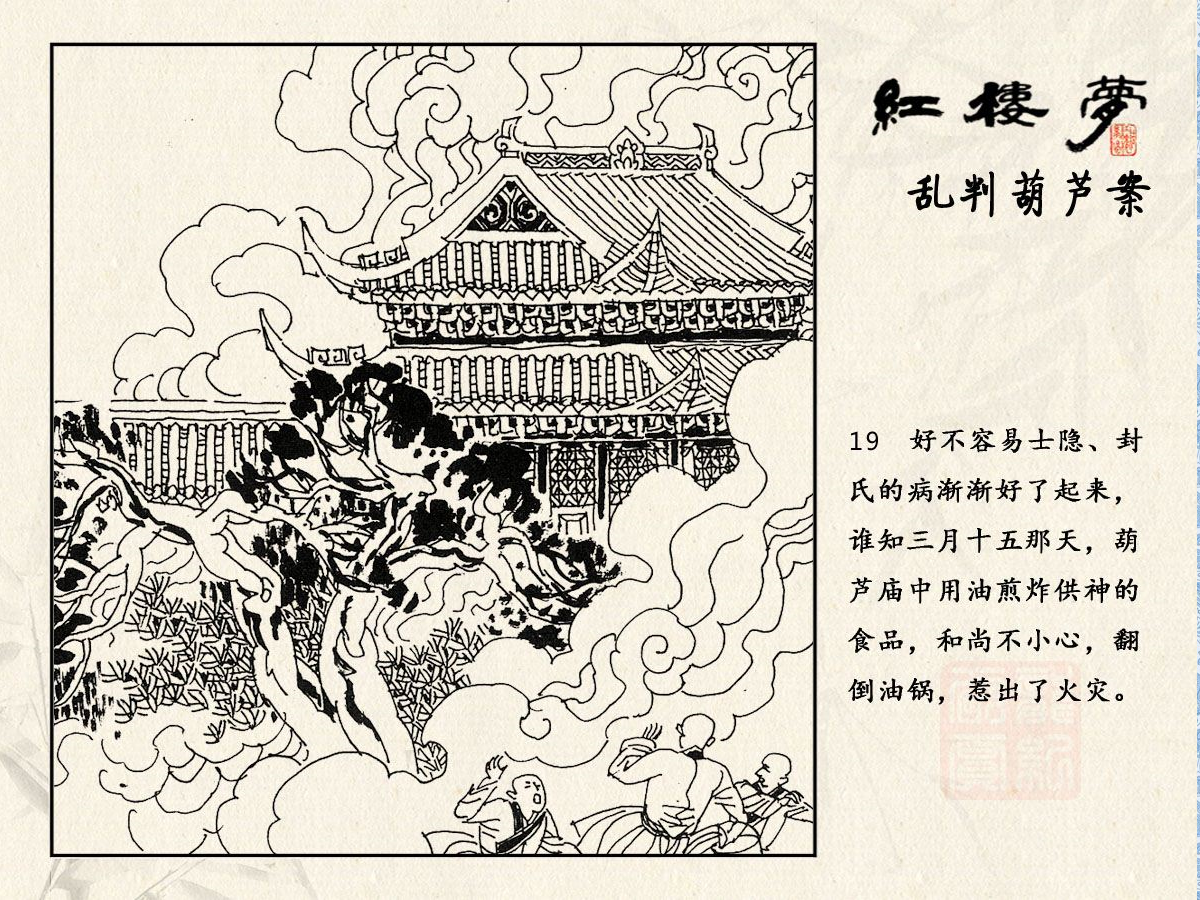 紅樓夢
乱判葫芦案
19 好不容易士隐、封
氏的病渐渐好了起来，
谁知三月十五那天，葫
芦庙中用油煎炸供神的
食品，和尚不小心，翻
倒油锅，惹出了火灾。